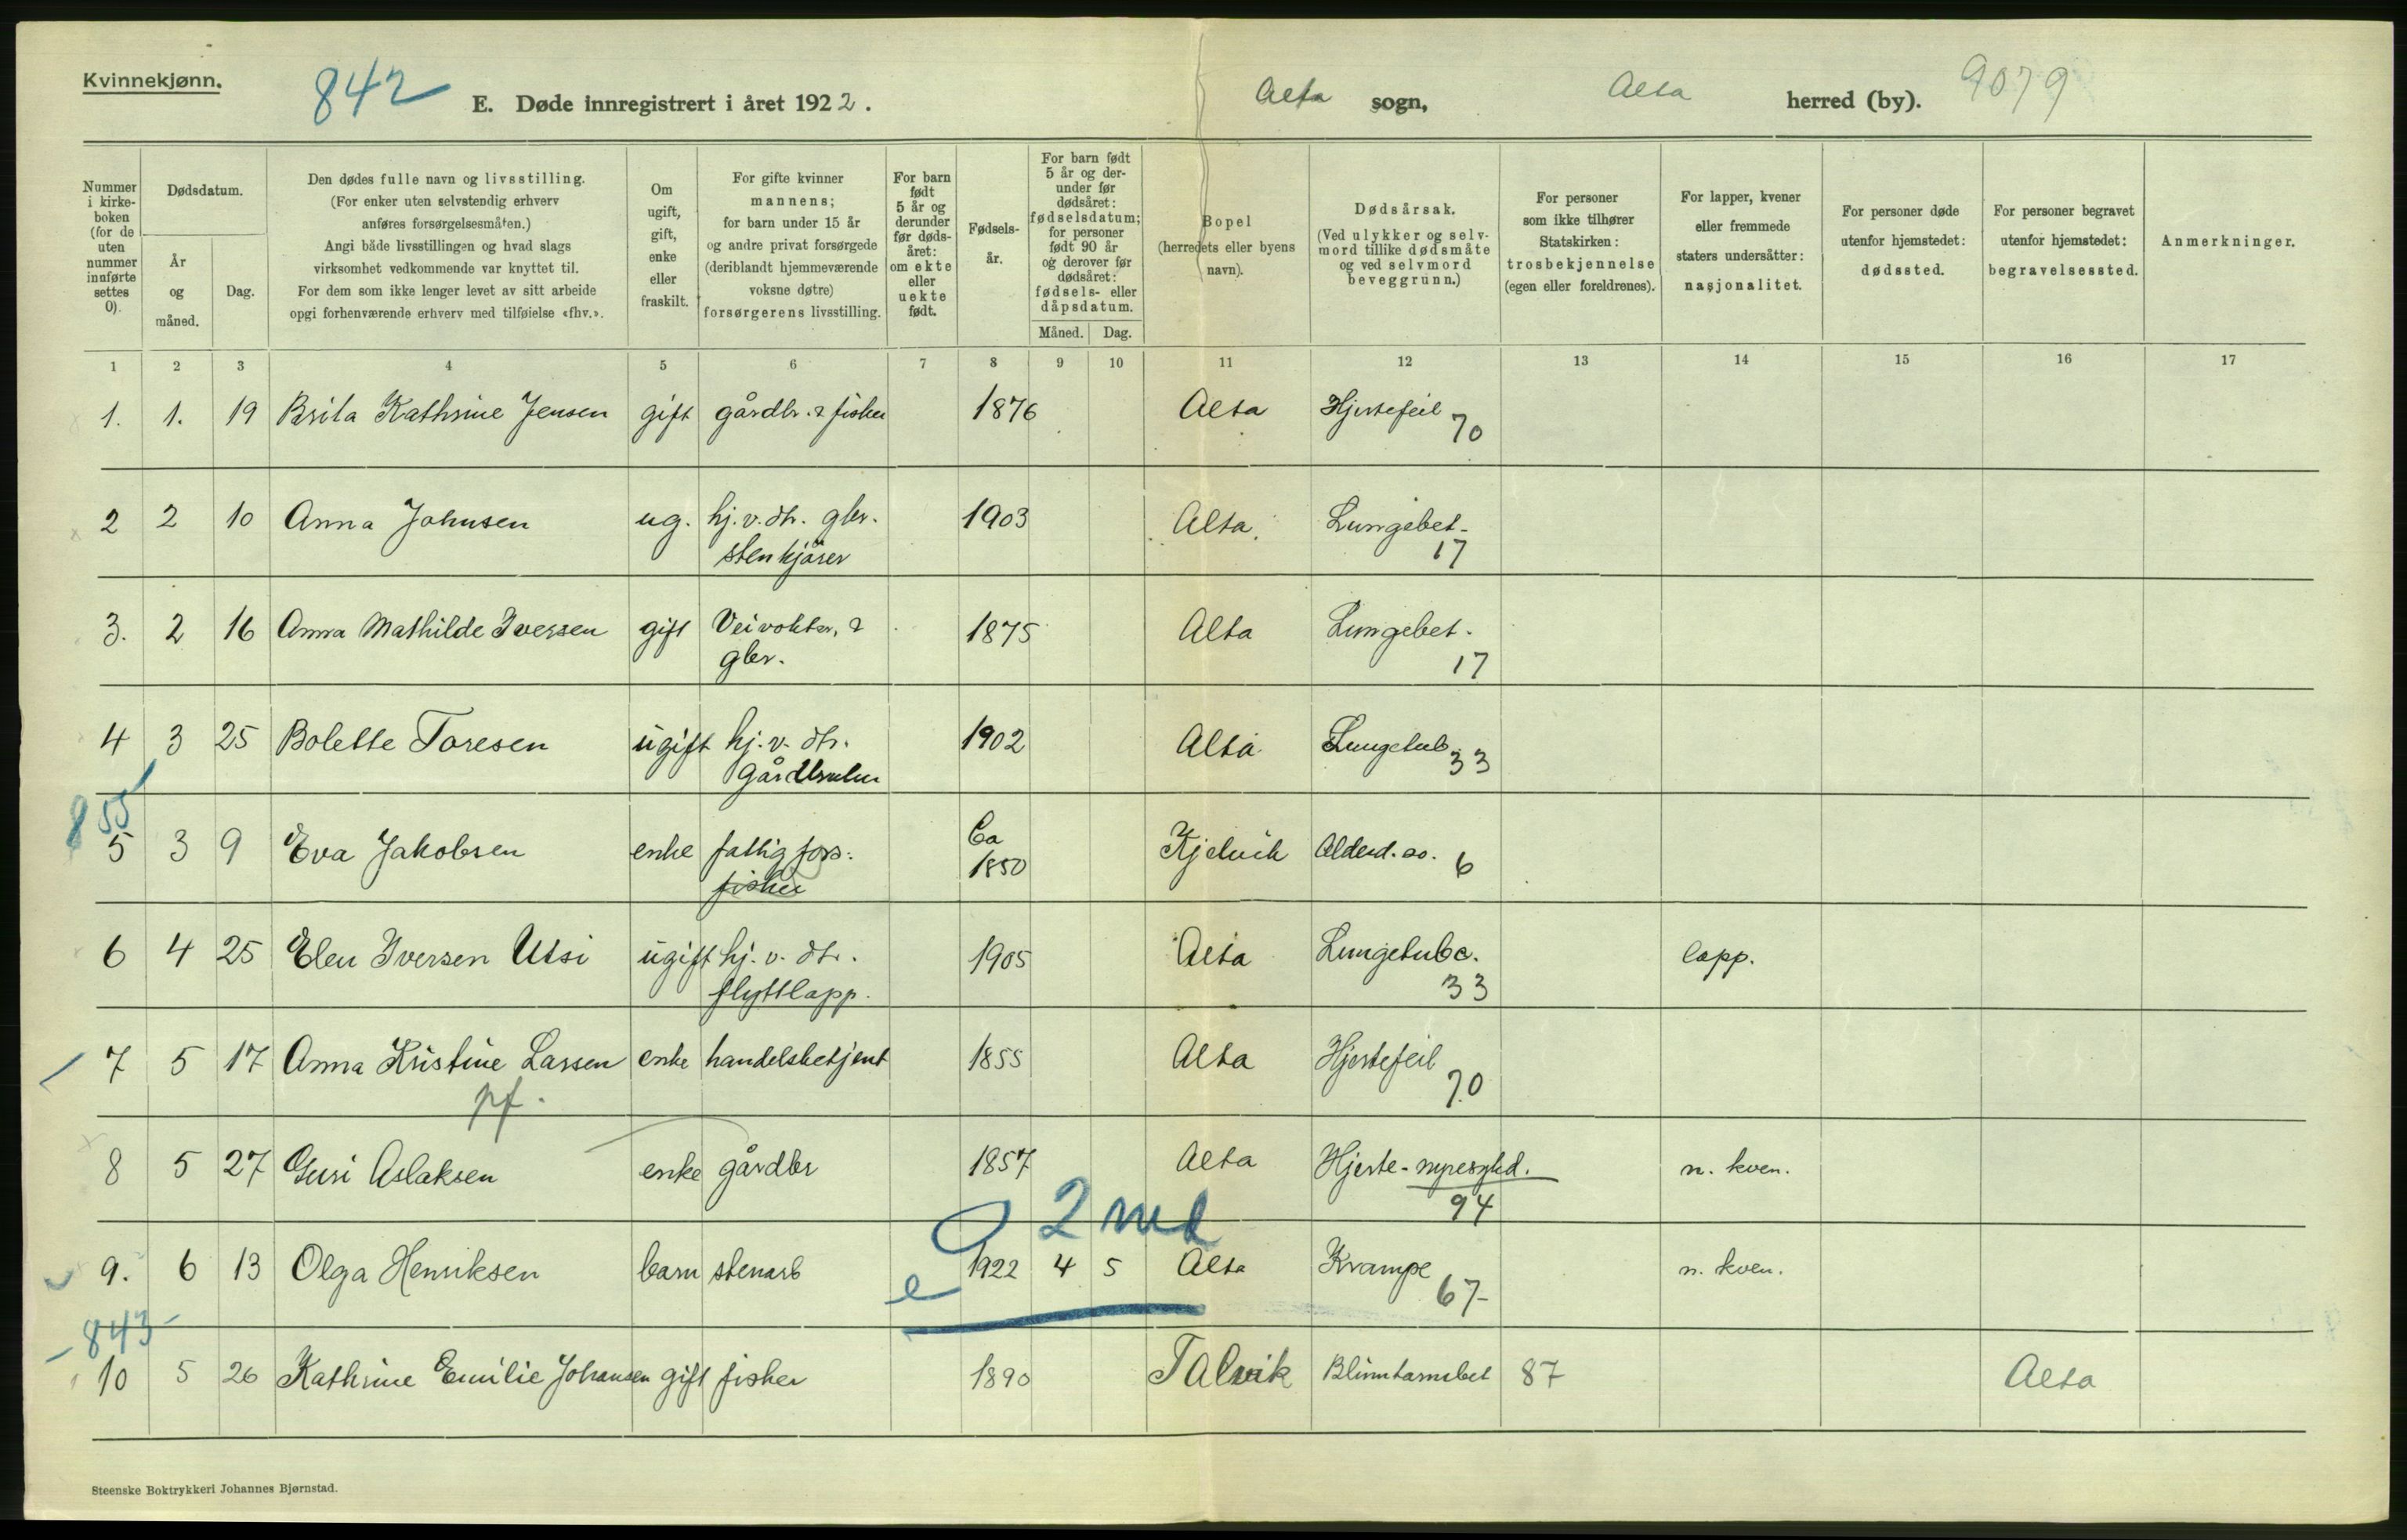 Kvinnekjønn.
842
E. Døde innregistrert i året 1922.
Alta sogn,
Alta herred (by).
9079
Nummer i kirkeboken (for de uten nummer innførte settes 0).
Dødsdatum.
År og måned.
Dag.
Den dødes fulle navn og livsstilling.
(For enker uten selvstendig erhverv
anføres forsørgelsesmåten.)
Angi både livsstillingen og hvad slags
virksomhet vedkommende var knyttet til.
For dem som ikke lenger levet av sitt arbeide
opgi forhenværende erhverv med tilføielse «fhv.».
Om ugift, gift, enke eller fraskilt.
For gifte kvinner
mannens;
for barn under 15 år
og andre privat forsørgede
(deriblandt hjemmeværende
voksne døtre)
forsørgerens livsstilling.
For barn født 5 år og derunder før dødsåret: om ekte eller uekte født.
Fødselsår.
For barn født 5 år og derunder før dødsåret: fødselsdatum; for personer født 90 år og derover før dødsåret: fødsels- eller dåpsdatum.
Måned. Dag.
Bopel
(herredets eller byens
navn).
Dødsårsak.
(Ved ulykker og selvmord tillike dødsmåte og ved selvmord beveggrunn.)
For personer
som ikke tilhører
Statskirken:
trosbekjennelse
(egen eller foreldrenes).
For lapper, kvener
eller fremmede
staters undersåtter:
nasjonalitet.
For personer døde
utenfor hjemstedet:
dødssted.
For personer begravet
utenfor hjemstedet:
begravelsessted.
Anmerkninger.
1 2 3 4 5 6 7 8 9 10 11 12 13 14 15 16 17
1. 1. 19 Brita Kathrine Jensen gift gårdbr. & fisker 1876 Alta Hjertefeil 70
2 2 10 Anna Johnsen ug. hj.v.dtr. gbr. 1903 Alta Lungebet.
stenkjører 17
3. 2 16 Anna Mathilde Iversen gift Veivokter, & 1875 Alta Lungebet.
gbr. 17
4 3 25 Bolette Toresen ugift hj.v. dtr. 1902 Alta Lungetub. 33
gårdbruker
855
5 3 9 Eva Jakobsen enke fattigfors. Ca 1850 Kjelvik Alderd. 6
fisker
6 4 25 Elen Iversen Utsi ugift hj.v. dtr. 1905 Alta Lungetubc. lapp.
flyttlapp. 33
7 5 17 Anna Kristine Larsen enke handelsbetjent 1855 Alta Hjertefeil 70
pf.
8 5 27 Guri Aslaksen enke gårdbr 1857 Alta Hjerte- n. kven.
94
2 md
9. 6 13 Olga Henriksen barn stenarb e 1922 4 5 Alta Krampe 67 n. kven.
843
10 5 26 Kathrine Emilie Johansen gift fisker 1890 Talvik Blinntarmbet 87 Alta
Steenske Boktrykkeri Johannes Bjørnstad.